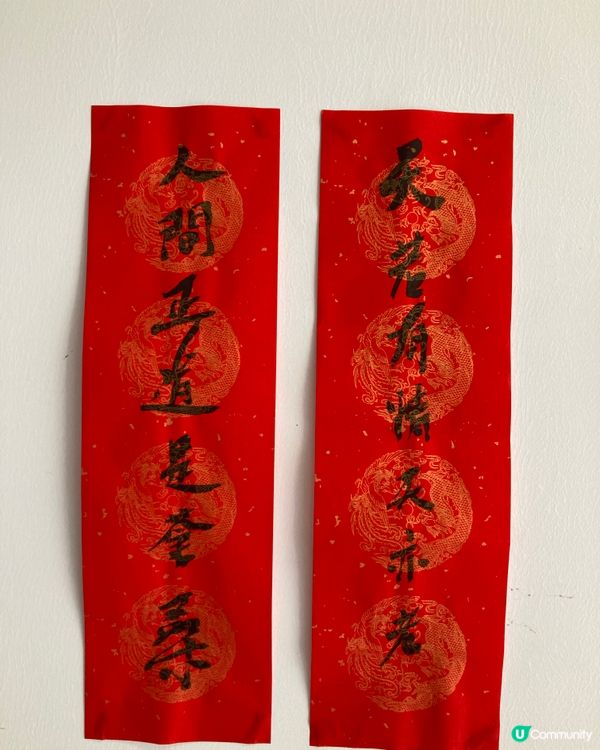 天若有情天亦老
人間正道是桑
U Community